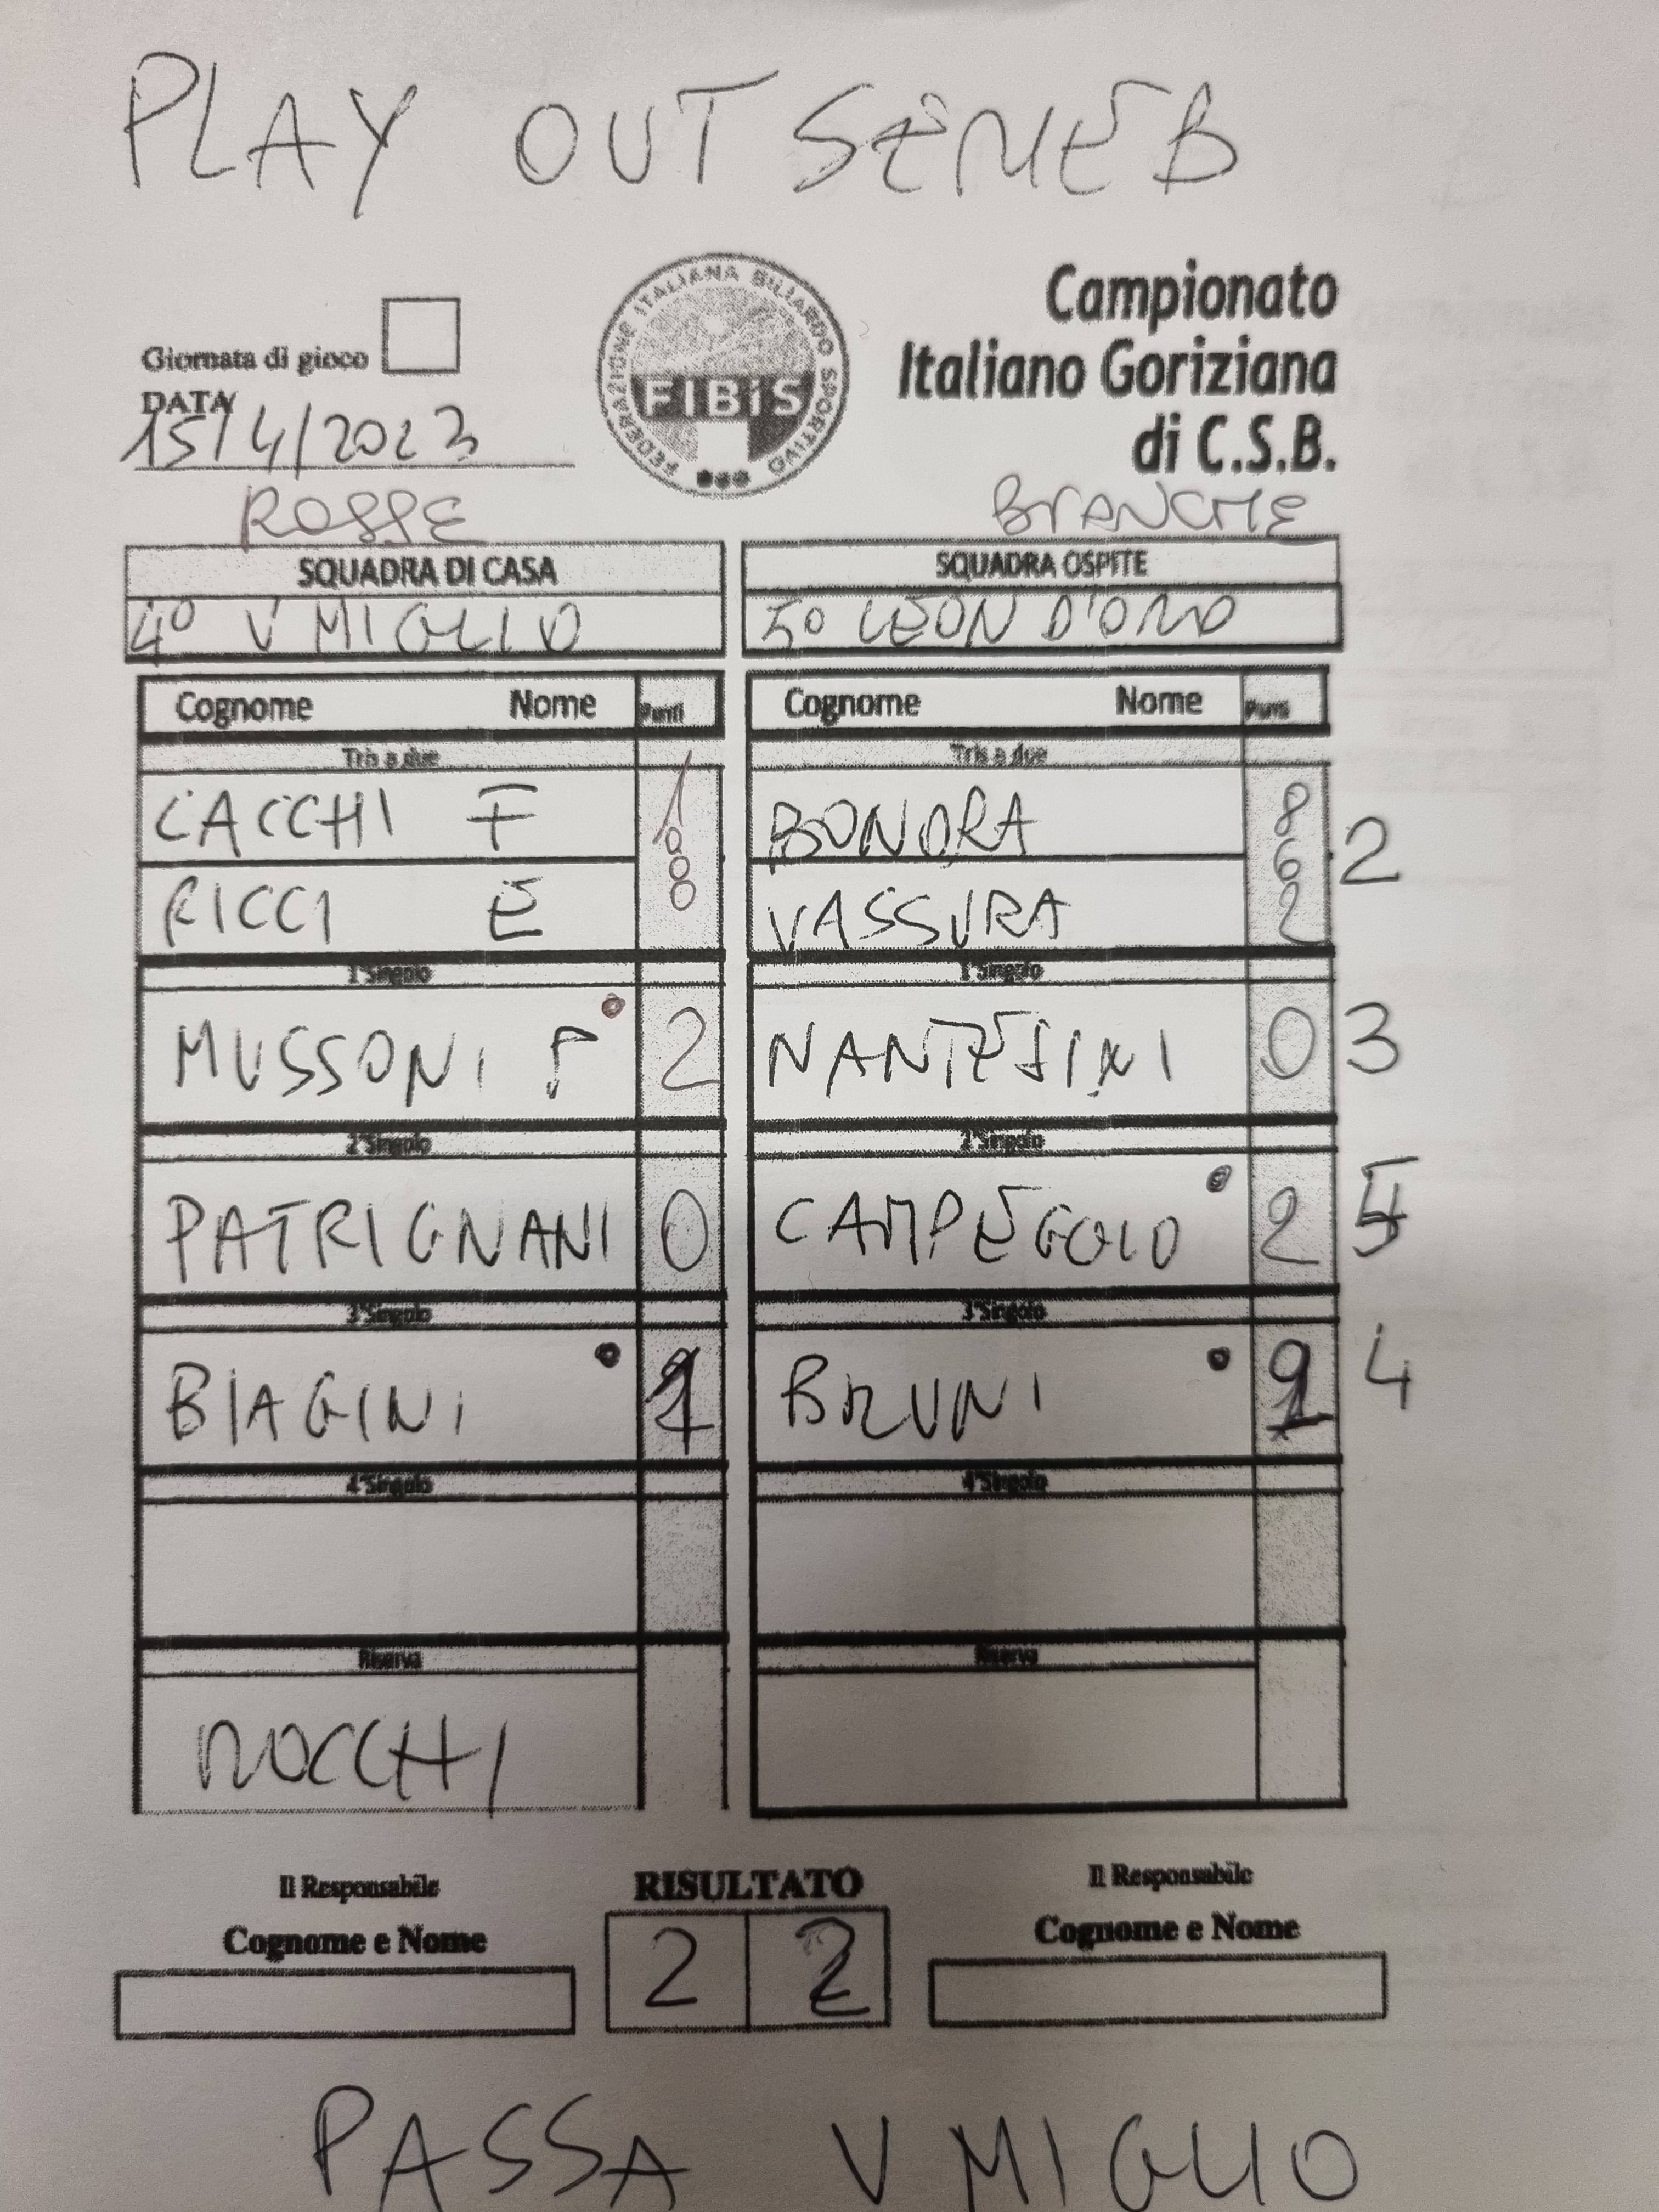 PLAY OUT SERIE B
Giornata di gioco
DATA
15/4/2023
FEDERAZIONE ITALIANA BILIARDO SPORTIVO
FIBiS
Campionato
Italiano Goriziana
di C.S.B.
ROSSE
BIANCHE
SQUADRA DI CASA
SQUADRA OSPITE
4° V MIGLIO
5° LEON D'ORO
Cognome Nome Punti
Cognome Nome Punti
Tris a due
Tris a due
CACCHI F
RICCI E
BONORA
VASSURA
8
6
2
2
1°Singolo
1°Singolo
MUSSONI P 2
NANTESINI 0 3
2°Singolo
2°Singolo
PATRIGNANI 0
CAMPEGGIO 2
3°Singolo
3°Singolo
BIAGINI
BRUNI 4
4°Singolo
4°Singolo
Riserva
Riserva
NOCCHI
Il Responsabile
Cognome e Nome
RISULTATO
2 2
Il Responsabile
Cognome e Nome
PASSA V MIGLIO